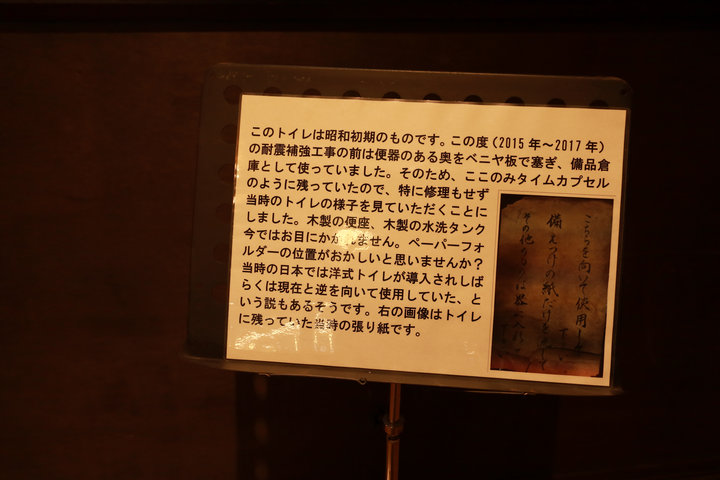 このトイレは昭和初期のものです。この度（2015年～2017年）
の耐震補強工事の前は便器のある奥をベニヤ板で塞ぎ、備品倉
庫として使っていました。そのため、ここのみタイムカプセル
のように残っていたので、特に修理もせず
当時のトイレの様子を見ていただくことに
しました。木製の便座、木製の水洗タンク
今ではお目にかかれません。ペーパーフォ
ルダーの位置がおかしいと思いませんか？
当時の日本では洋式トイレが導入されしば
らくは現在と逆を向いて使用していた、と
いう説もあるそうです。右の画像はトイレ
に残っていた当時の張り紙です。
こちらを向いて使用して
下さい
備えつけの紙だけを
その他のものは